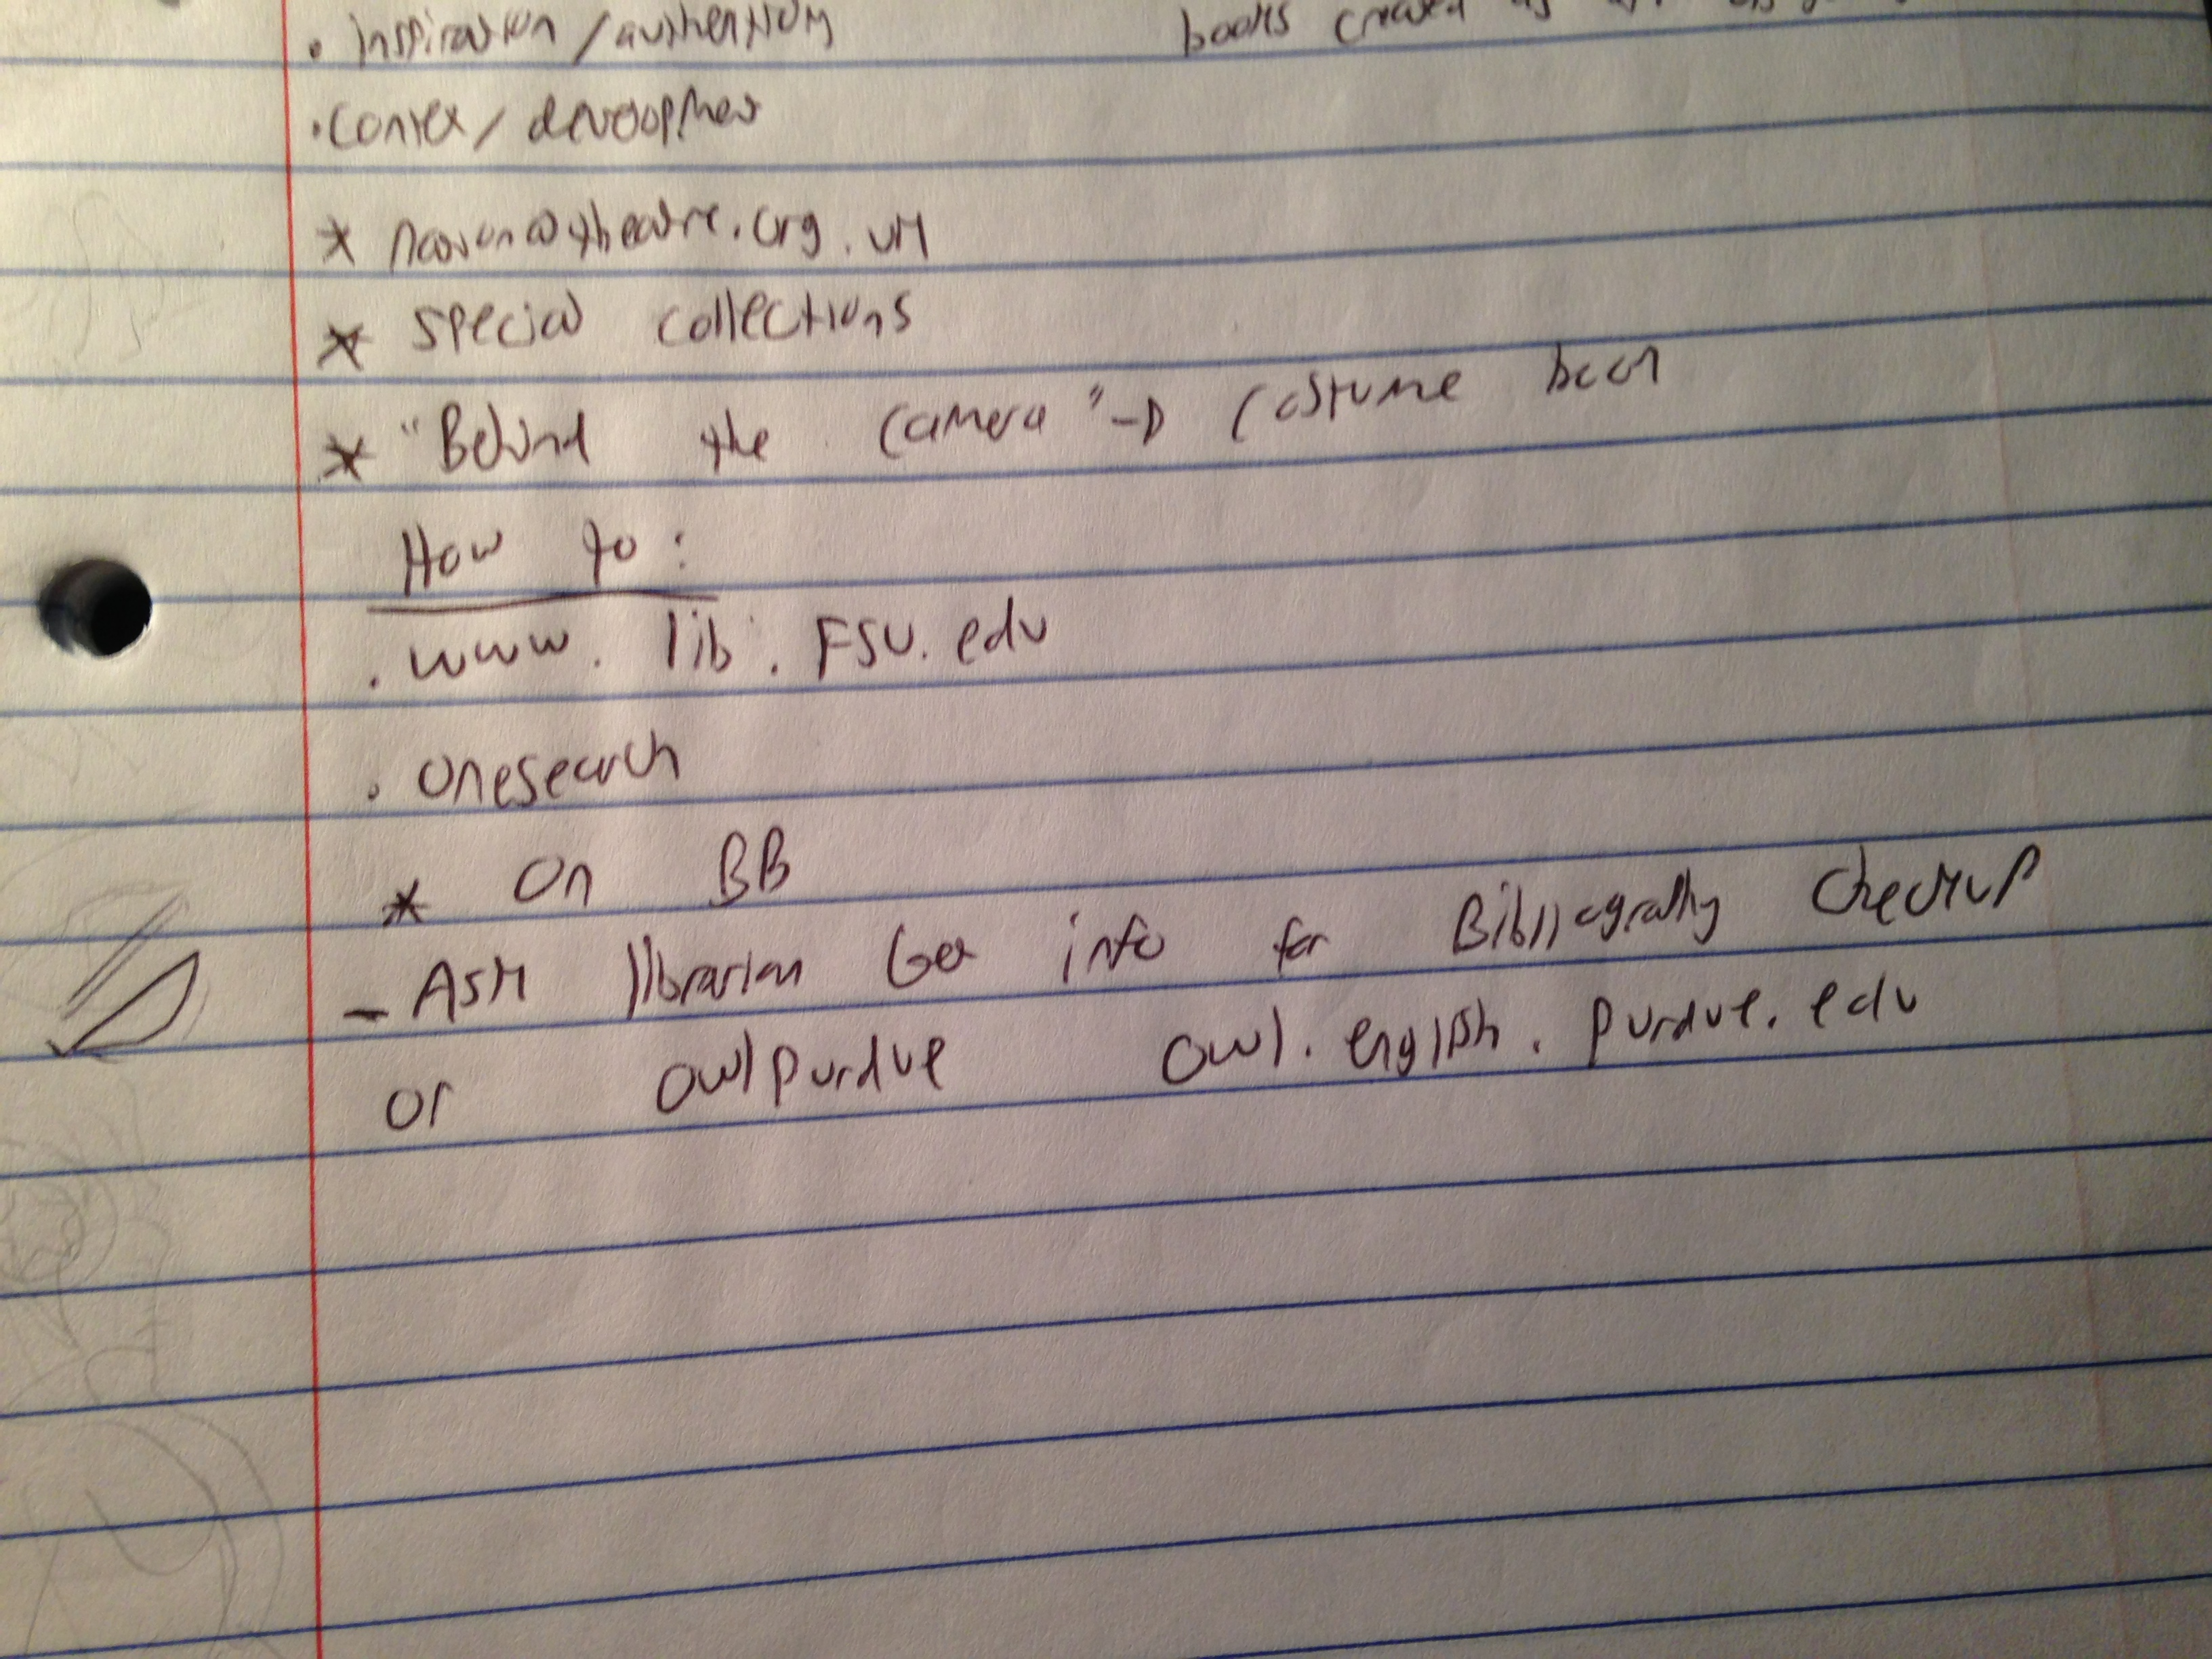 • inspiration / authenticity books created as
• Contex / development
* nationaltheatre.org.uk
* special collections
* "Behind the camera" -> Costume book
How to:
• www.lib.FSU.edu
• onesearch
* On BB
- Ask librarian Get info for Bibliography checkup
or owlpurdue owl.english.purdue.edu